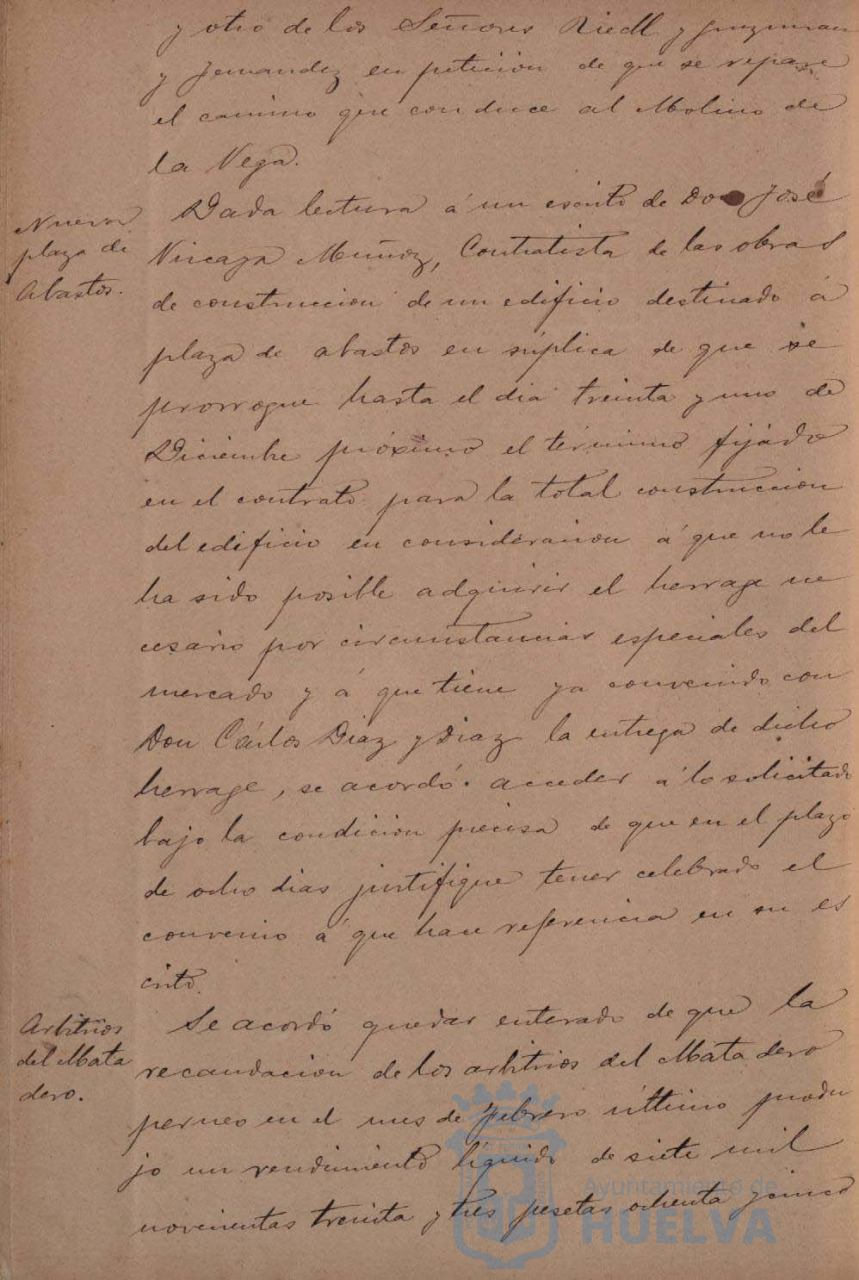 y otro de los Señores Riedl y Guzman
y Fernandez en peticion de que se repare
el camino que conduce al Molino de
la Vega.
Nueva
plaza de
Abastos.
Dada lectura á un escrito de Don José
Vizcaya Muñoz, Contratista de las obras
de construccion de un edificio destinado á
plaza de abastos en súplica de que se
prorrogue hasta el dia treinta y uno de
Diciembre próximo el término fijado
en el contrato para la total construccion
del edificio en consideracion á que no le
ha sido posible adquirir el herrage ne
cesario por circunstancias especiales del
mercado y á que tiene ya convenido con
Don Cárlos Diaz y Diaz la entrega de dicho
herrage, se acordó acceder á lo solicitado
bajo la condicion precisa de que en el plazo
de ocho dias justifique tener celebrado el
convenio á que hace referencia en su es
crito.
Arbitrios
del Mata
dero.
Se acordó quedar enterado de que la
recaudacion de los arbitrios del Matadero
perneo en el mes de Febrero último produ
jo un rendimiento líquido de siete mil
novecientas treinta y tres pesetas ochenta y cinco
Ayuntamiento de
HUELVA